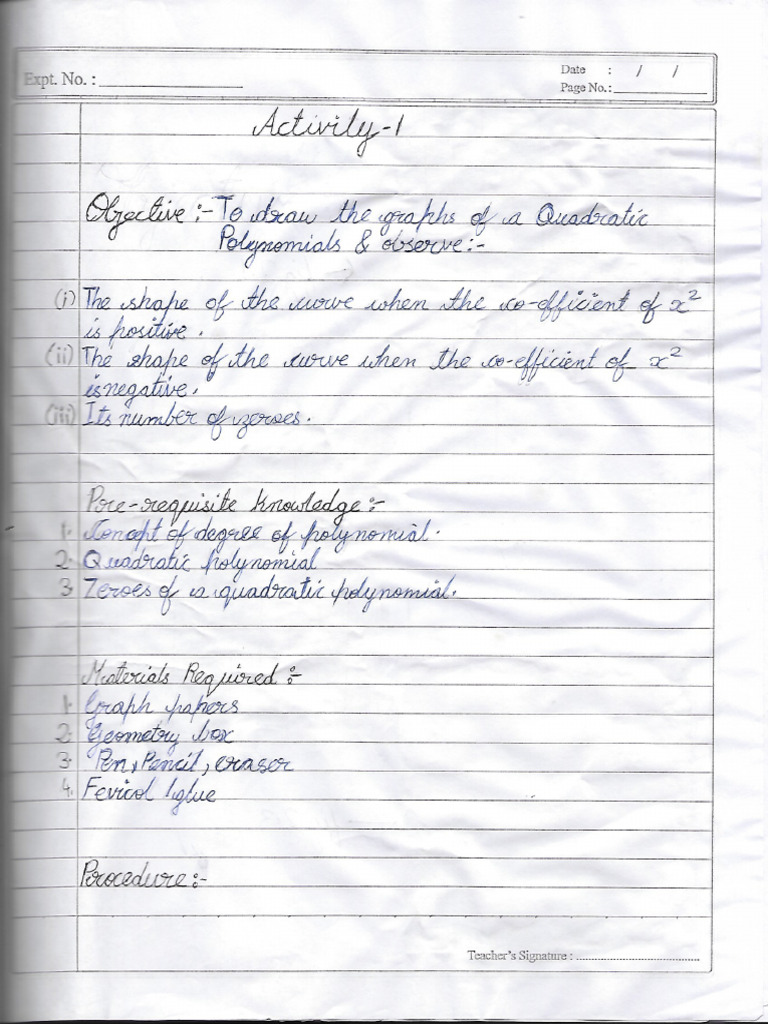 Expt. No. :
Date : / /
Page No.:
Activity-1
Objective :- To draw the graphs of a Quadratic
Polynomials & observe:-
(i) The shape of the curve when the co-efficient of x²
is positive.
(ii) The shape of the curve when the co-efficient of x²
is negative.
(iii) Its number of zeroes.
Pre-requisite knowledge:-
1. Concept of degree of polynomial.
2. Quadratic polynomial
3. Zeroes of a quadratic polynomial.
Materials Required :-
1. Graph papers
2. Geometry box
3. Pen, Pencil, eraser
4. Fevicol / glue
Procedure:-
Teacher's Signature :